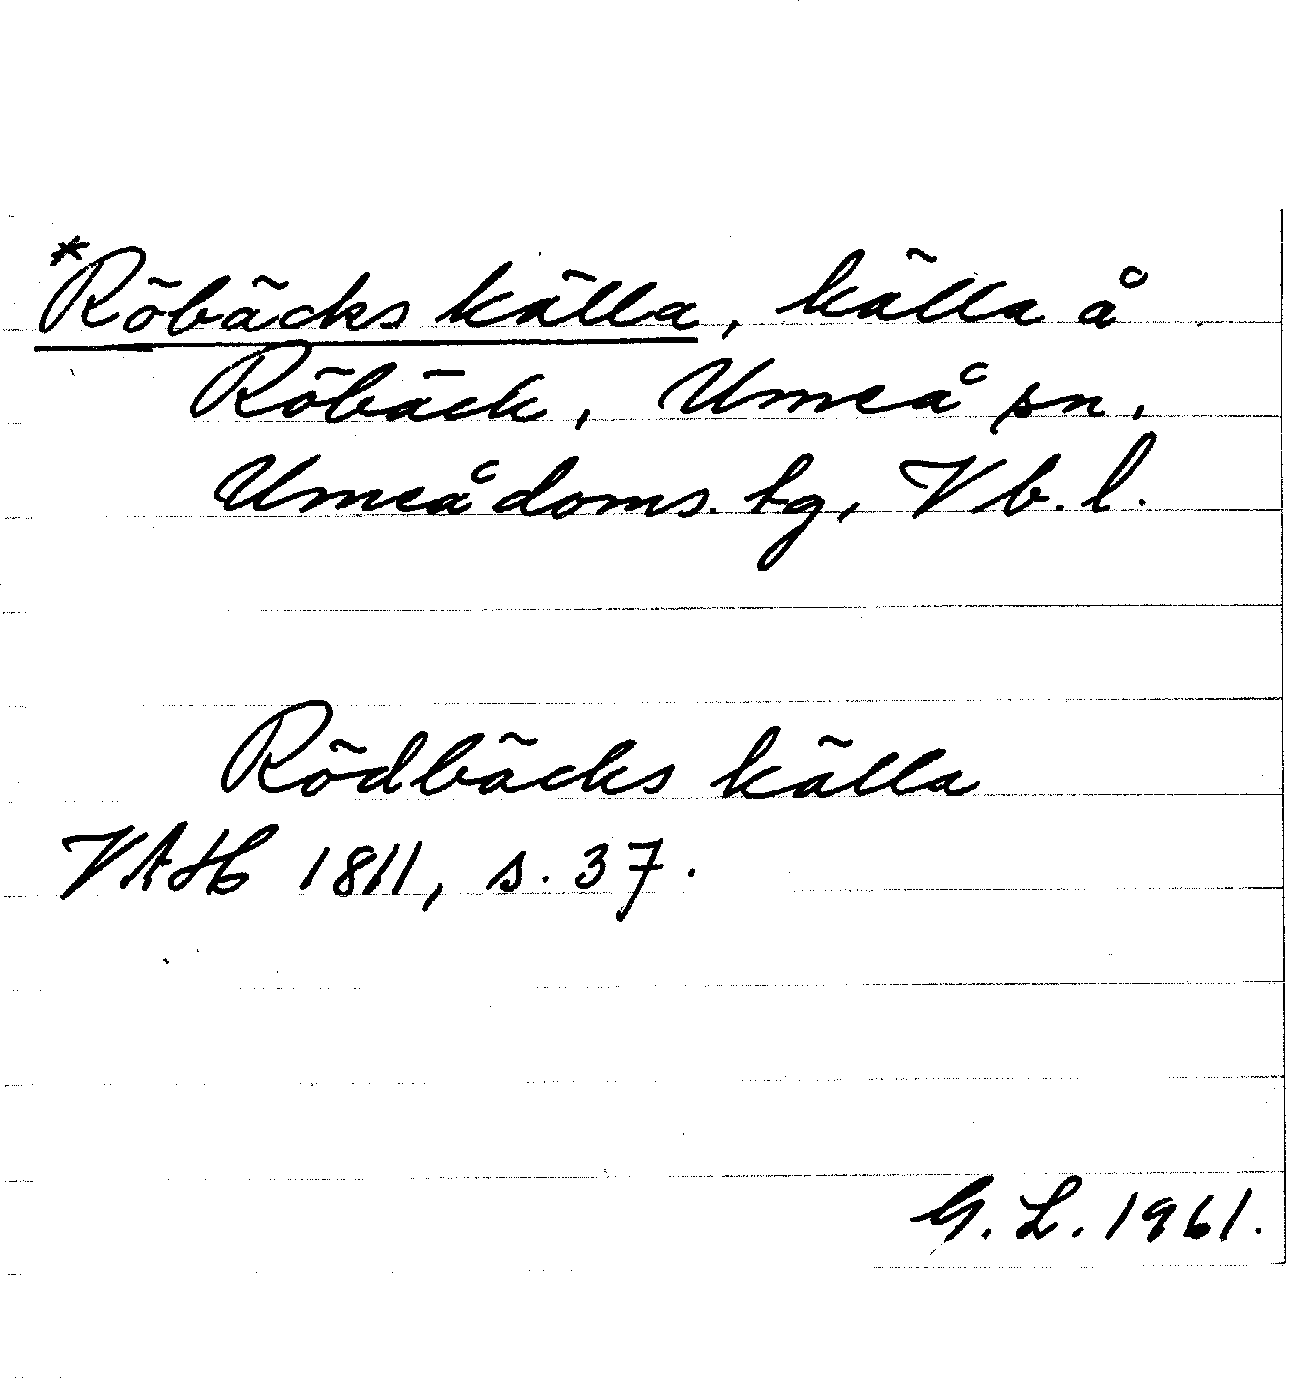 *Röbäcks källa, källa å
Röbäck, Umeå sn,
Umeå doms. tg, Vb. l.
Rödbäcks källa
VAH 1811, s. 37.
G. L. 1961.